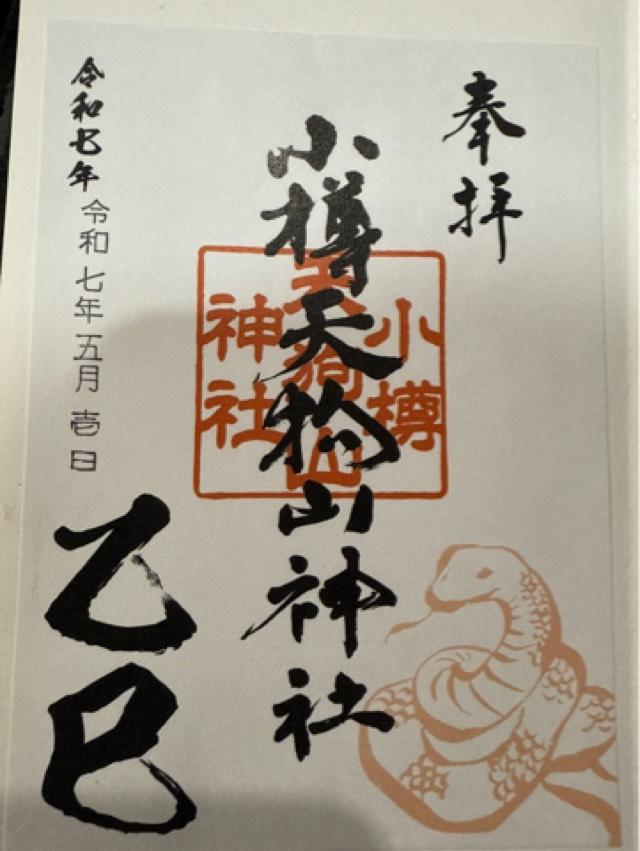 奉拝
小樽天狗山神社
小樽
天狗山
神社
令和七年
令和七年五月壱日
乙巳